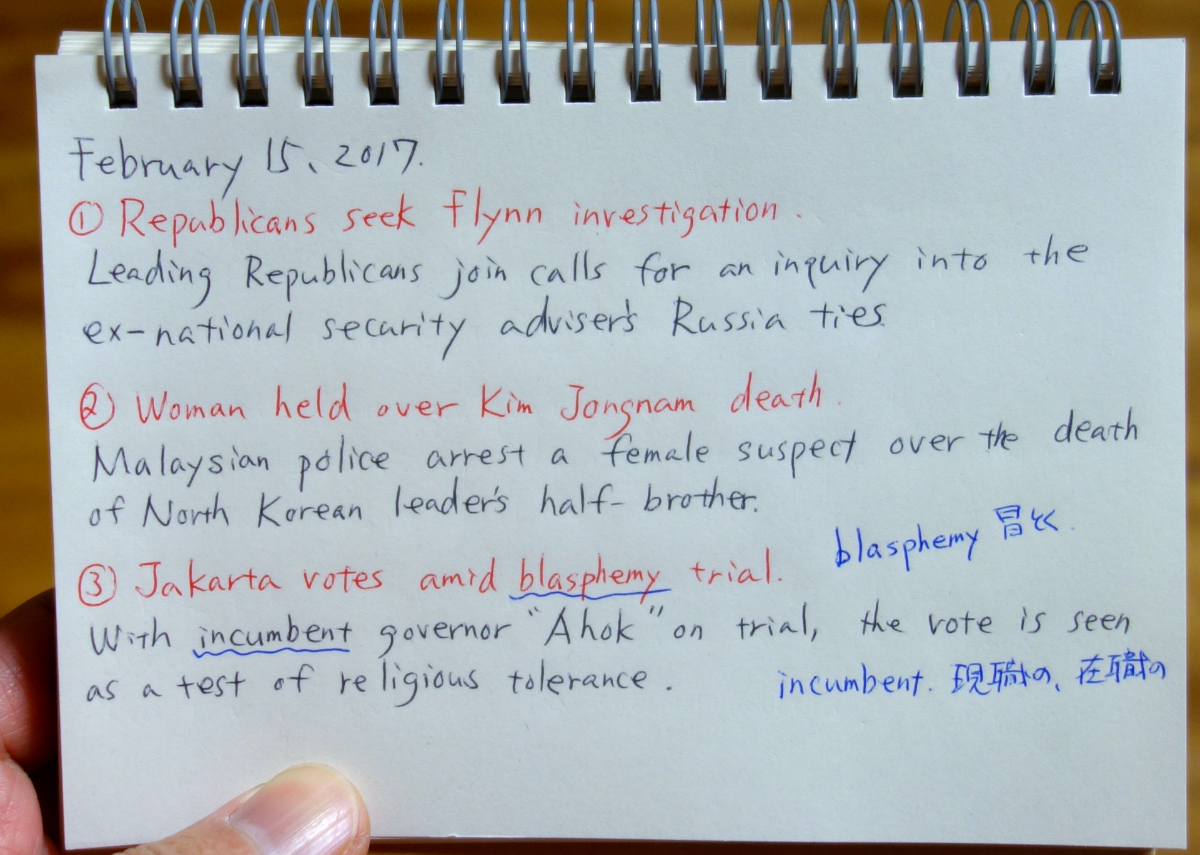 February 15、2017.
① Republicans seek Flynn investigation.
Leading Republicans join calls for an inquiry into the
ex-national security adviser's Russia ties.
② Woman held over Kim Jongnam death.
Malaysian police arrest a female suspect over the death
of North Korean leader's half-brother.
blasphemy 冒とく.
③ Jakarta votes amid blasphemy trial.
With incumbent governor "Ahok" on trial, the vote is seen
as a test of religious tolerance.
incumbent. 現職の、在職の